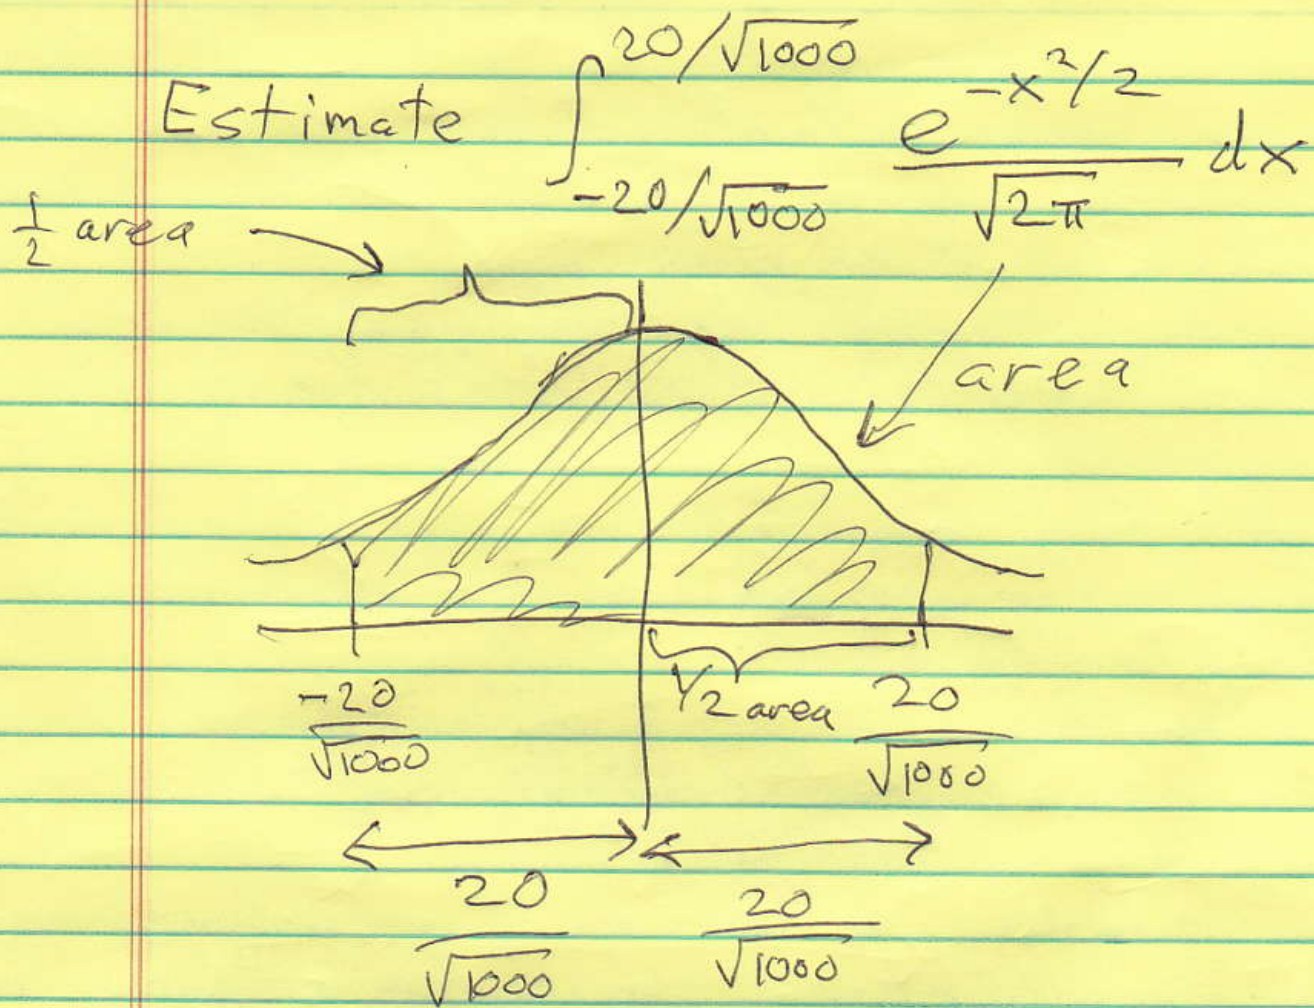 Estimate ∫_{-20/√1000}^{20/√1000} e^{-x²/2}/√2π dx
½ area
area
-20/√1000 ½ area 20/√1000
20/√1000 20/√1000